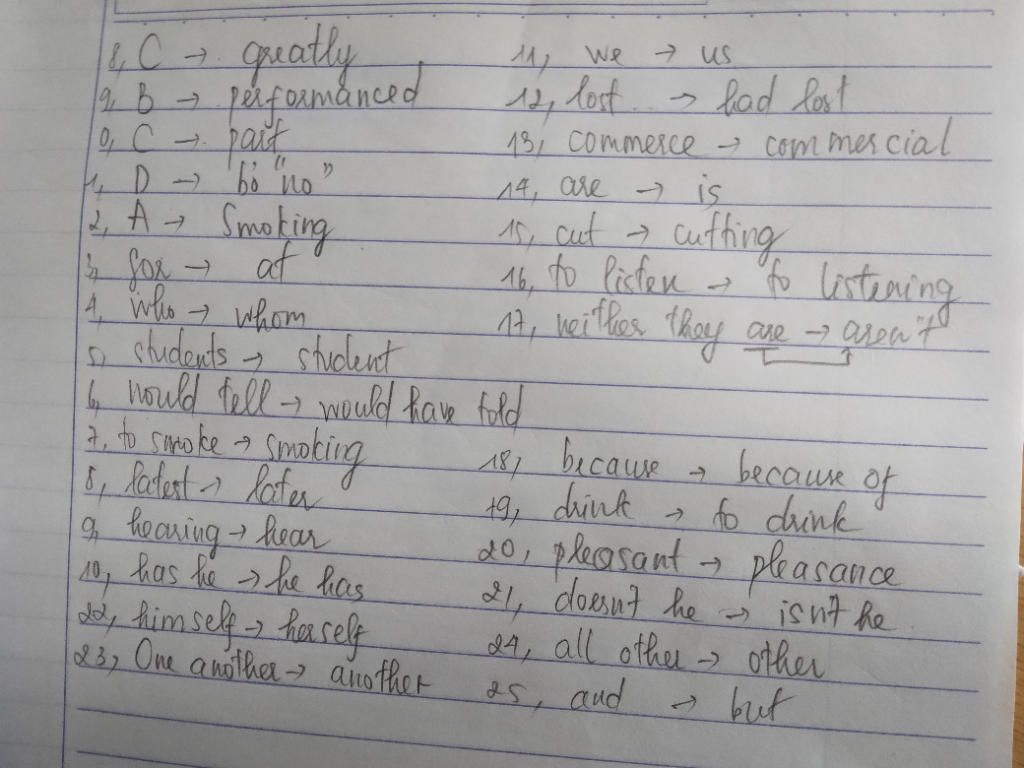 8, C → greatly
9, B → performanced
0, C → part
1, D → bỏ "no"
2, A → Smoking
3, for → at
4, who → whom
5, students → student
6, would tell → would have told
7, to smoke → smoking
8, latest → later
9, hearing → hear
10, has he → he has
22, himself → herself
23, One another → another
11, we → us
12, lost → had lost
13, commerce → commercial
14, are → is
15, cut → cutting
16, to listen → to listening
17, neither they are → aren't
18, because → because of
19, drink → to drink
20, pleasant → pleasance
21, doesn't he → isn't he
24, all other → other
25, and → but